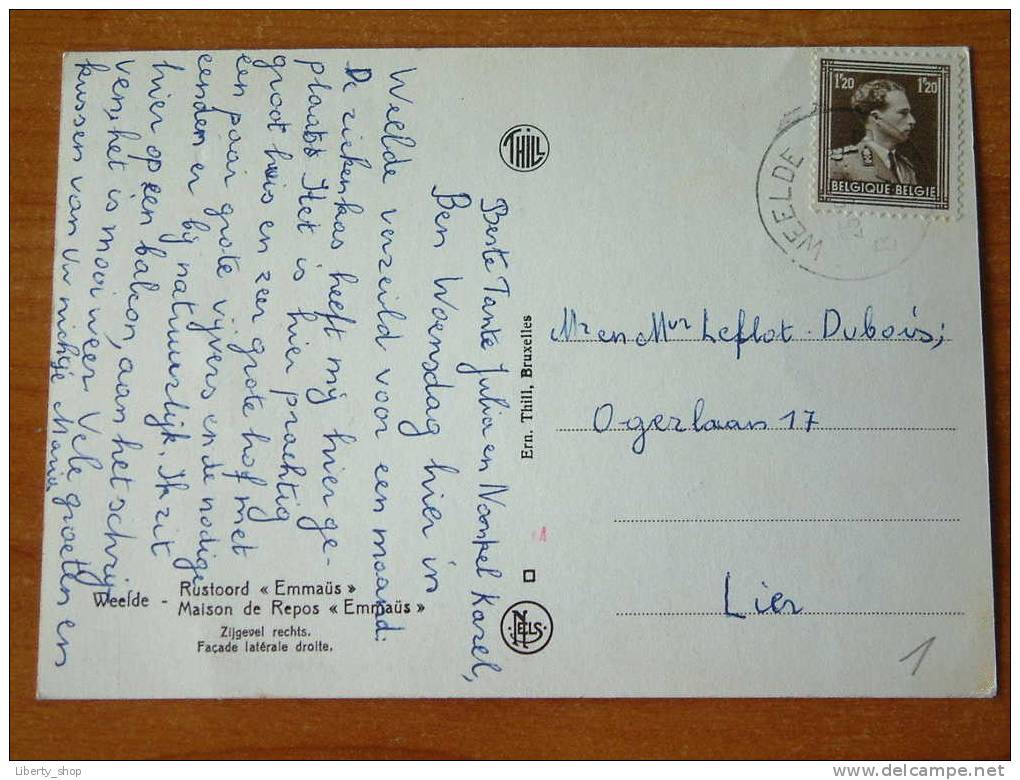 Beste Tante Julia en Nonkel Karel,
Ben Woensdag hier in
Weelde verzeild voor een maand.
De ziekenkas heeft mij hier ge-
plaatst Het is hier prachtig
groot huis en zeer grote hof met
een paar grote vijvers en de nodige
eenden er bij natuurlijk. Ik zit
hier op een balcon, aan het schrij-
ven, het is mooi weer Vele groeten en
kussen van Uw nichtje Maria
Weelde - Rustoord « Emmaüs »
Maison de Repos « Emmaüs »
Zijgevel rechts.
Façade latérale droite.
THILL
Ern. Thill, Bruxelles
NELS
1F20 1F20
BELGIQUE-BELGIE
WEELDE
Mr en Mvr Leflot-Dubois;
Ogerlaan 17
Lier
1
Liberty_shop
delcampe.net